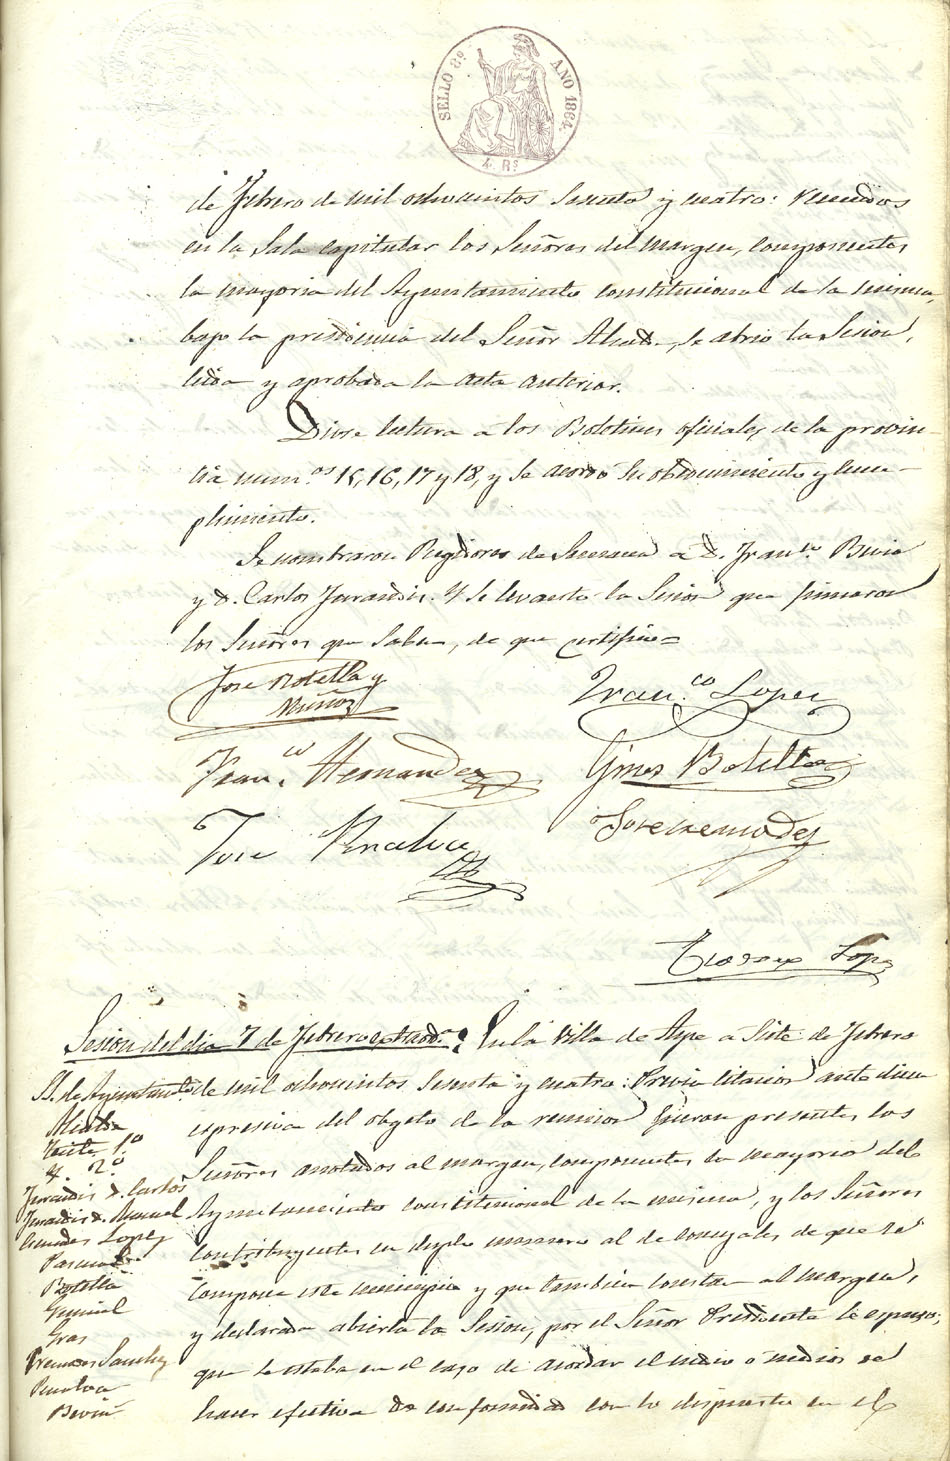 SELLO 8º AÑO 1864.
4. Rs
de Febrero de mil ochocientos sesenta y cuatro: reunidos
en la Sala capitular los Señores del margen, componentes
la mayoria del Ayuntamiento constitucional de la misma,
bajo la presidencia del Señor Alcalde, se abrio la Sesion,
leida y aprobada la acta anterior.
Diose lectura a los Boletines oficiales de la provin-
cia num.os 15, 16, 17 y 18, y se acordó su obedecimiento y cum-
plimiento.
Se nombraron Regidores de Semana a D. Fran.co
y D. Carlos Jurandis. Y se levantó la Sesion que firmaron
los Señores que saben, de que certifico=
Jose Botella y
Muñoz
Fran.co Lopez
Fran.co Hernandez
Gines Botella
Jose
Jose
Lopez
Sesion del dia 7 de Febrero extraord.a
En la Villa de Aspe a siete de Febrero
S. de Ayuntam.to
de mil ochocientos sesenta y cuatro: Previa citacion ante diem
Alcalde
espresiva del objeto de la reunion fueron presentes los
Tente. 1º
Id. 2º
Señores anotados al margen, componentes la mayoria del
Jurandis D. Carlos
Jurandis D. Manuel
Ayuntamiento constitucional de la misma, y los Señores
Lopez
contribuyentes en duplo numero al de concejales de que se
Pascual
Botella
compone este municipio y que tambien constan al margen,
Gras
y declarada abierta la Sesion, por el Señor Presidente se espuso:
Sanchez
que se estaba en el caso de acordar el medio ó medios de
hacer efectiva de conformidad con lo dispuesto en el